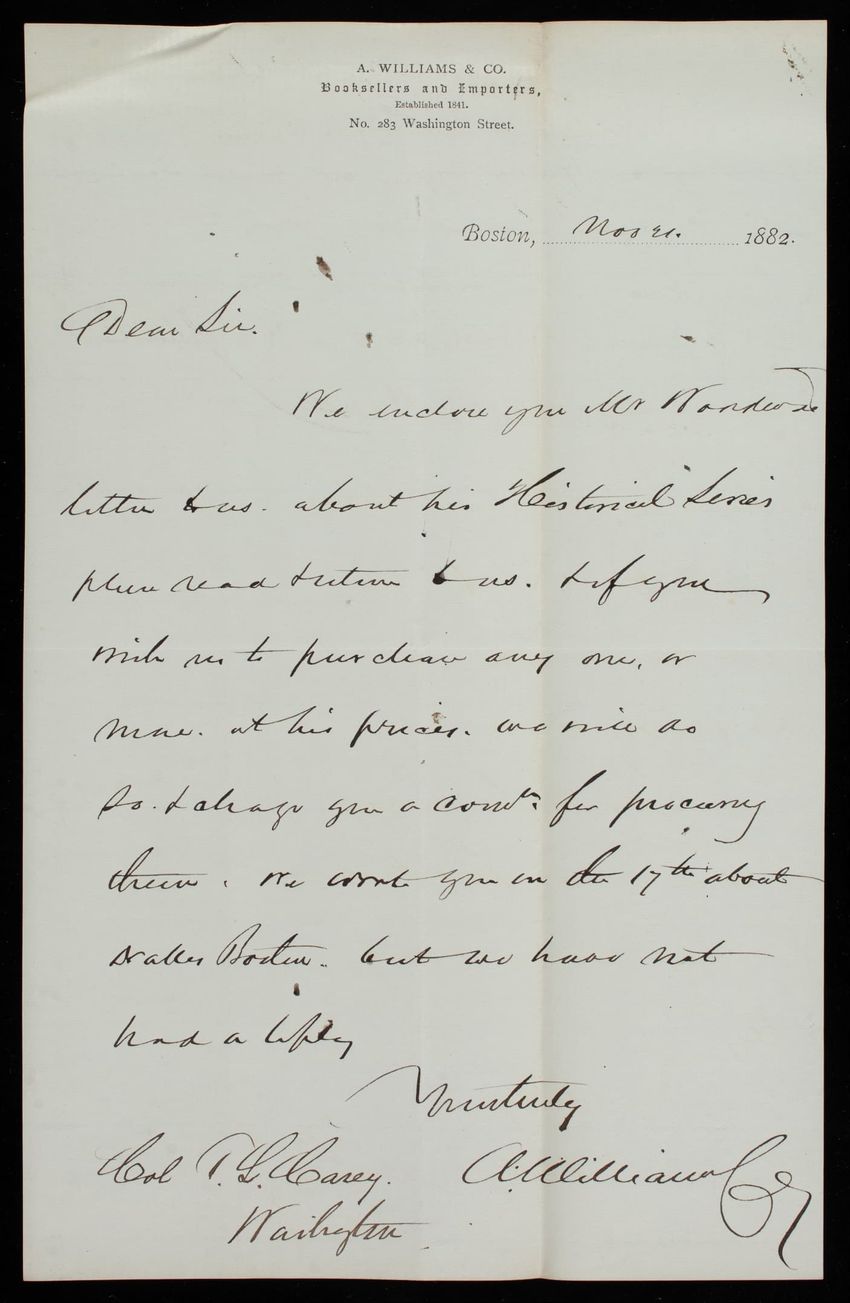 A. WILLIAMS & CO.
Booksellers and Importers,
Established 1841.
No. 283 Washington Street.
Boston, Nov 21. 1882.
Dear Sir.
We enclose you Mr Woodward
letter to us. about his Historical Series
please read & return to us. & if you
wish us to purchase any one, or
more. at his prices. we will do
so. & charge you a comn. for procuring
them. We wrote you on the 17th about
Drakes Boston. but we have not
had a reply
Yours truly
Col T. L. Casey. A. Williams & Co
Washington